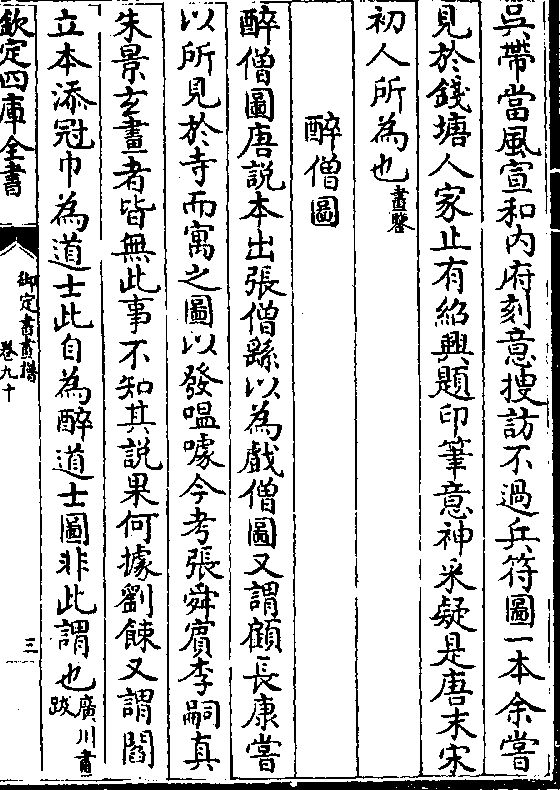 吳帶當風宣和内府刻意搜訪不過兵符圖一本余嘗
見於錢塘人家止有紹興題印筆意神采疑是唐末宋
初人所為也畫鑒
醉僧圖
醉僧圖唐説本出張僧繇以為戲僧圖又謂顧長康嘗
以所見於寺而寓之圖以發嗢噱今考張舜賓李嗣真
朱景玄畫者皆無此事不知其説果何據劉餗又謂閻
立本添冠巾為道士此自為醉道士圖非此謂也廣川畫跋
欽定四庫全書
御定書畫譜
卷九十
三